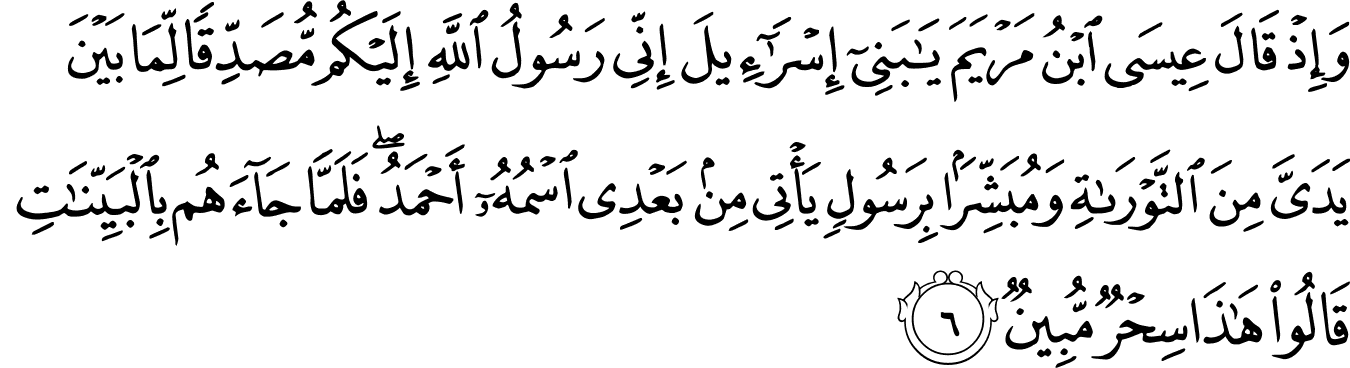 وَإِذۡ قَالَ عِيسَى ٱبۡنُ مَرۡيَمَ يَٰبَنِيٓ إِسۡرَٰٓءِيلَ إِنِّي رَسُولُ ٱللَّهِ إِلَيۡكُم مُّصَدِّقٗا لِّمَا بَيۡنَ
يَدَيَّ مِنَ ٱلتَّوۡرَىٰةِ وَمُبَشِّرَۢا بِرَسُولٖ يَأۡتِي مِنۢ بَعۡدِي ٱسۡمُهُۥٓ أَحۡمَدُۖ فَلَمَّا جَآءَهُم بِٱلۡبَيِّنَٰتِ
قَالُواْ هَٰذَا سِحۡرٞ مُّبِينٞ ٦